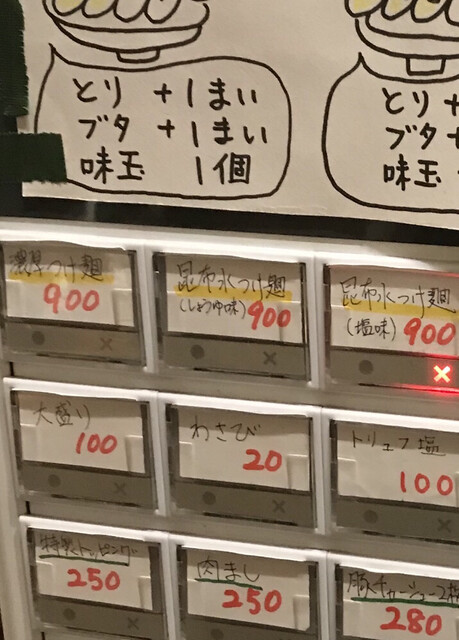 とり +1まい
ブタ +1まい
味玉 1個
とり
ブタ+
味玉
濃厚つけ麺
900
昆布水つけ麺
(しょうゆ味) 900
昆布水つけ麺
(塩味) 900
大盛り
100
わさび
20
トリュフ塩
100
特製トッピング
250
肉まし
250
豚チャーシュー2枚
280